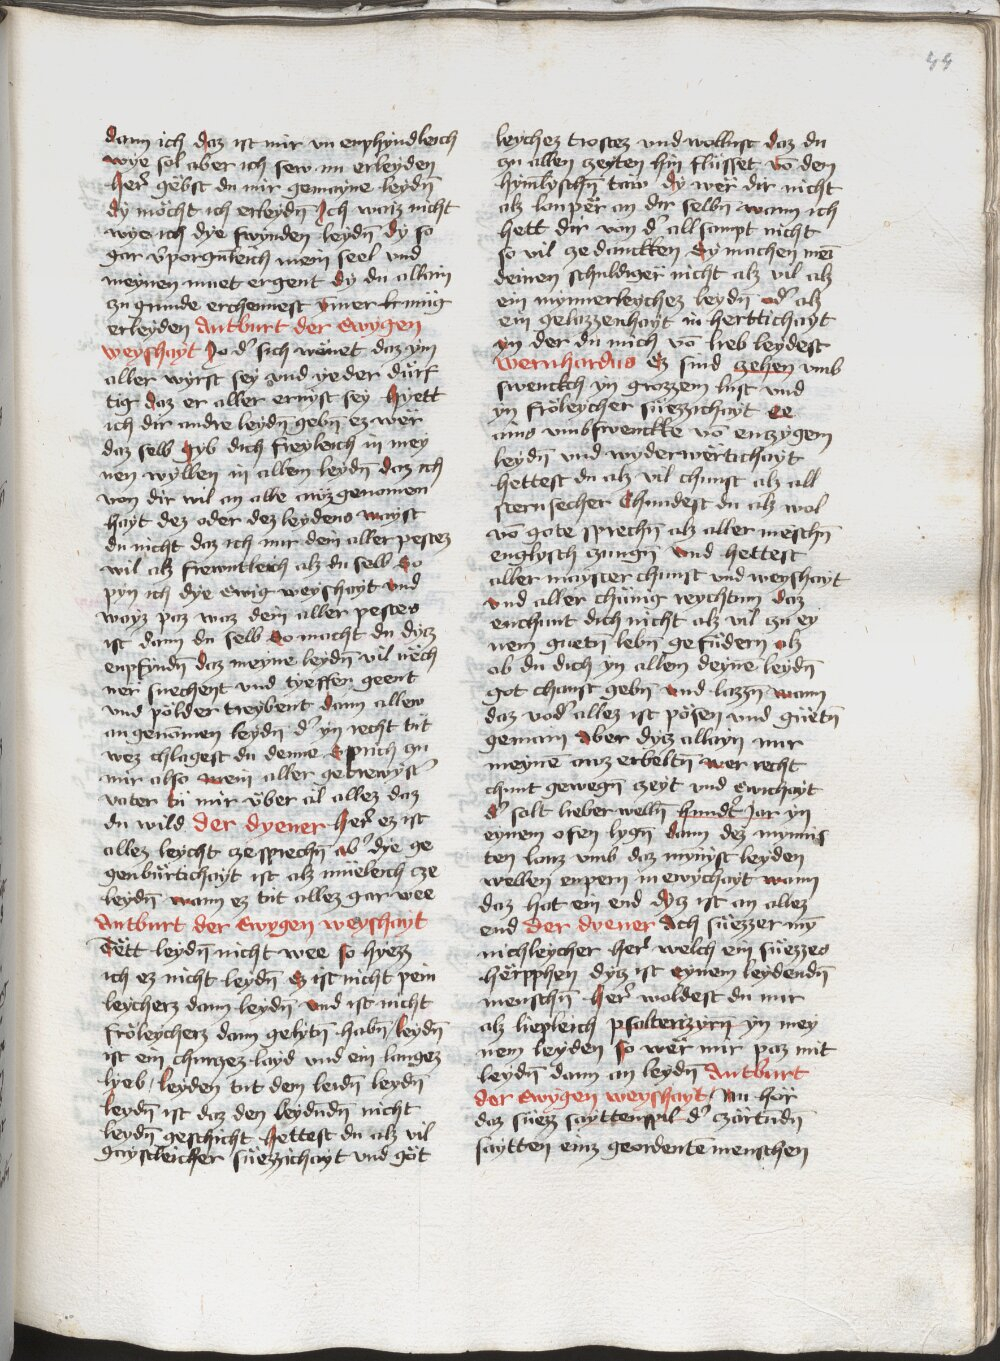 44
dann ich daz ist mir vn enphyndleich
wye sol aber ich sew im erleyden
herr gebst du mir gemayne leydn̄
dy möcht ich erleydn̄ Ich waiz nicht
wye ich dye swynden leydn̄ dy so
gar v̓porgenleich mein seel vnd
meynen muet ergent dy du allain
zu grunde erchennest ymmer kunnig
erleyden Antburt der Ewygen
weyshayt Jo d̓ sich wënet daz ym
aller wyrst sey vnd yeder dürf
tig daz er aller ernyst sey hyett
ich dir andre leydn̄ gebn̄ ez wër
daz selb Gyb dich freyleich in mey
nen wyllen in allem leydn̄ daz ich
von dir wil an alle awzgenomen
hayt dez oder dez leydens wayst
du nicht daz ich nur dein aller pestez
wil als frewntleich alz du selb So
pyn ich dye ewig weyshayt vnd
wayz paz waz dein aller pestes
ist dann du selb So macht du dycz
enpfyndn̄ daz meyne leydn̄ vil nëch
ner suechent vnd tyeffer geent
vnd pölder treybent dann allew
angenomen leydn̄ d̓ yn recht tüt
wez chlagest du denne Sprich zu
mir also mein aller getrewyst̓
vater tü mir v̈ber al allez daz
du wild der dyener herr ez ist
allez leycht cze sprechn̄ ab̓ dye ge
genbürtichayt ist alz müeleich cze
leydn̄ wann ez tüt allez gar wee
Antburt der Ewygen weyshayt
Tëtt leydn̄ nicht wee so hyezz
ich ez nicht leydn̄ Ez ist nicht pein
leycherz dann leydn̄ vnd ist nicht
fröleycherz dann gelytn̄ habn̄ leydn̄
ist ein churczez layd vnd ein langez
lyeb / leyden tut dem leidn̄ leydn̄
leydn̄ ist daz den leydndn̄ nicht
leydn̄ geschicht hettest du alz vil
gaystleicher süezzichayt vnd göt
leychez trostez vnd wollust daz du
zu allen zeyten hin flüsset vō dem
hymlyschn̄ taw dy wër dir nicht
alz lonpër an dir selbn̄ wann ich
hett dir von d̓ allsampt nicht
so vil ze dannkken Sy machen mei
deinen schuldiger nicht alz vil alz
ein mynnerleychez leydn̄ od̓ alz
ein gelazzenhayt in herttichayt
yn der du mich vō lieb leydest
Wernhardus Ez sind zehen vmb
swenckch yn grozzem lust vnd
yn fröleycher süezzichayt ee
ains vmbswenckte vō enczygem
leydn̄ vnd wyderwërtichayt
hettest du alz vil chunst alz all
sternsecher Chundest du alz wol
vō gote sprechn̄ alz aller meschn̄
englysch zungn̄ vnd hettest
aller mayster chunst vnd weyshayt
vnd aller chünig reychtum daz
enchunt dich nicht alz vil zu ey
nem guetn̄ lebn̄ gefüdern alz
ob du dich yn allem deyne leydn̄
got chanst gebn̄ vnd lazzn̄ wann
daz vod̓ allez ist pösen vnd güetn̄
gemain Aber dycz allayn nur
meynē awzerbeltn̄ wer recht
chunt gewegn̄ czeyt vnd ewichayt
d̓ solt lieber welln̄ hundt̓ Jar yn
eynem ofen lygn̄ dann dez mynnis
ten lonz vmb daz mynyst leyden
wellen enpern in ewychayt wann
daz hat ein end dycz ist an allez
end der dyener Ach süezzer my
nichleycher herr welch ein süezzes
hërpphen dycz ist eynem leydendn̄
menschn̄ herr woldest du mir
alz liepleich psalterczyrn̄ yn mey
nem leyden so wër mir paz mit
leydn̄ dann an leydn̄ Antburt
der Ewygen weyshayt Nu hör
daz süezz sayttenspil d̓ czärtndn̄
saytten einz geordente menschen